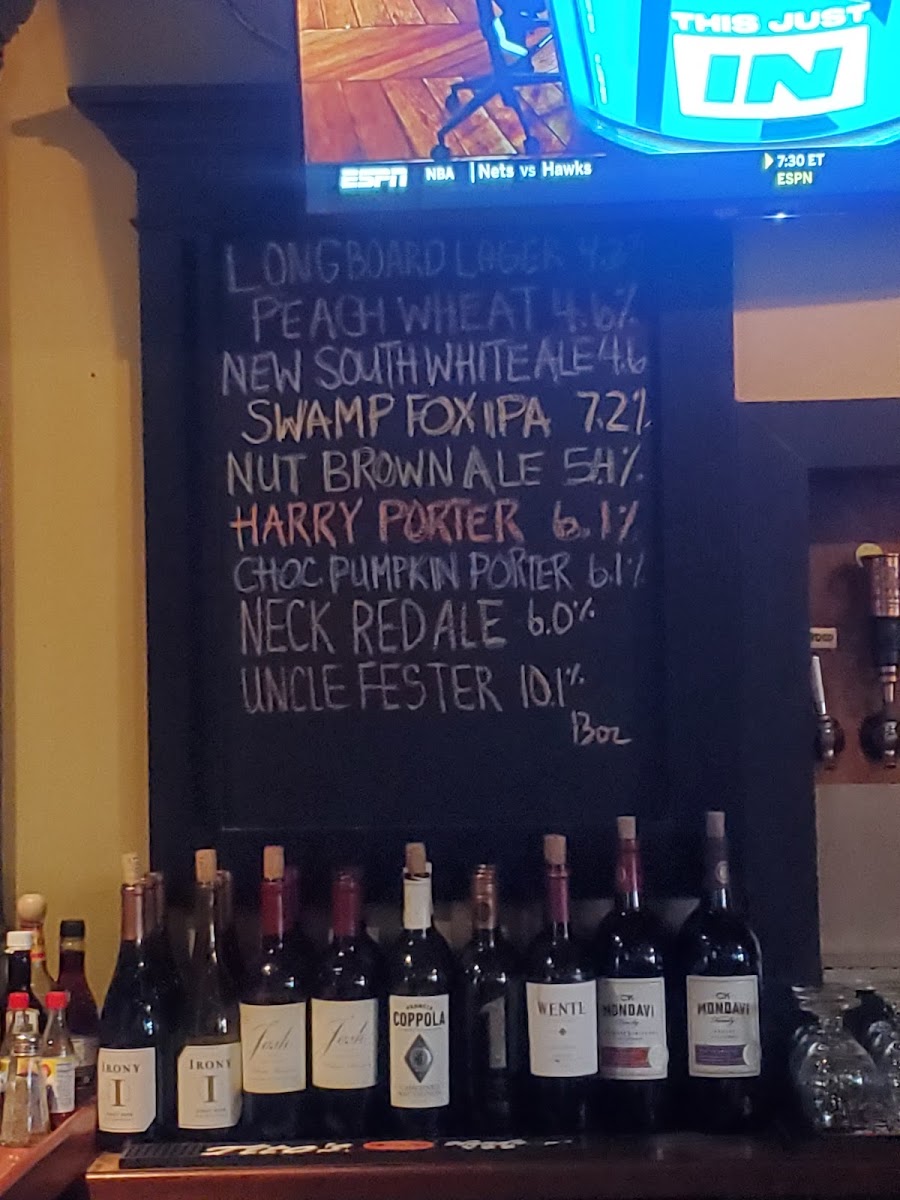 THIS JUST
IN
ESPN NBA | Nets vs Hawks
7:30 ET
ESPN
LONGBOARD LAGER
PEACH WHEAT 4.6%
NEW SOUTH WHITE ALE 4.6
SWAMP FOX IPA 7.2%
NUT BROWN ALE
HARRY PORTER 6.1%
CHOC. PUMPKIN PORTER 6.1%
NECK RED ALE 6.0%
UNCLE FESTER 10.1%
13oz
IRONY
I
IRONY
I
Josh
Josh
COPPOLA
1
WENTE
CK
MONDAVI
Family
CK
MONDAVI
Family
Tito's